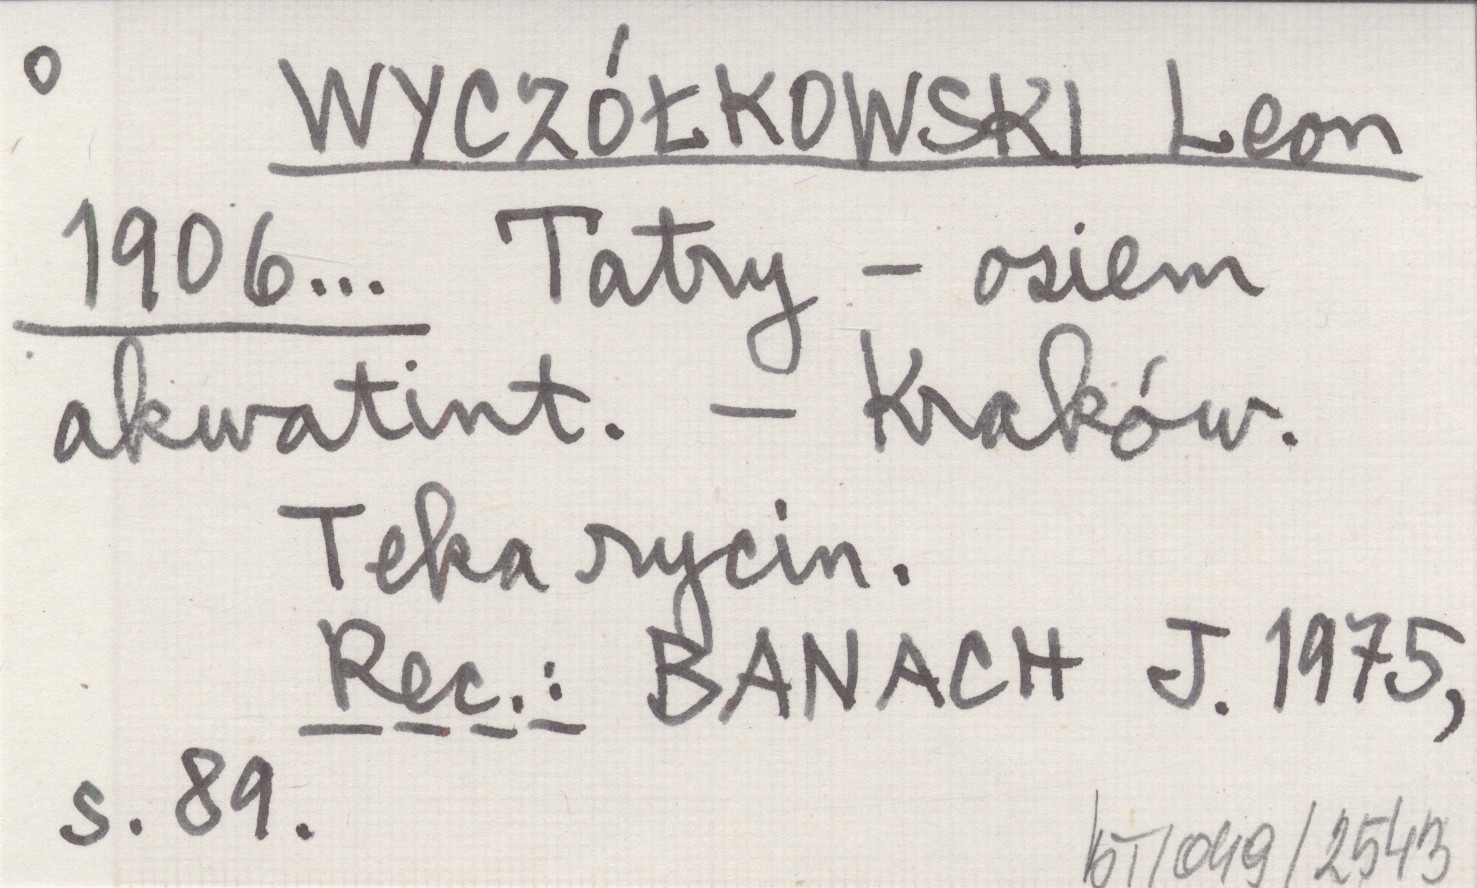 o WYCZÓŁKOWSKI Leon
1906... Tatry – osiem
akwatint. – Kraków.
Teka rycin.
Rec.: BANACH J. 1975,
s. 89.
bT/049/2543